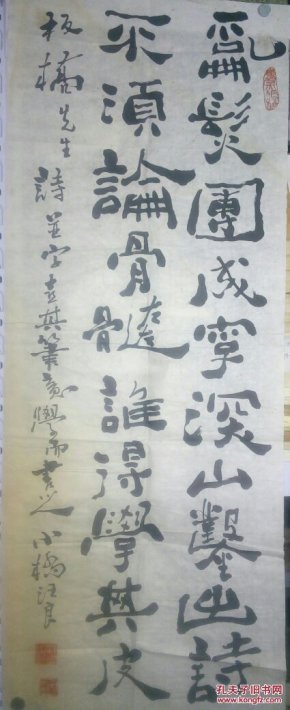 亂髮團成字深山鑿出詩
不須論骨髓誰得學其皮
板橋先生詩並字其筆意學而書之小橋汪良
孔夫子旧书网